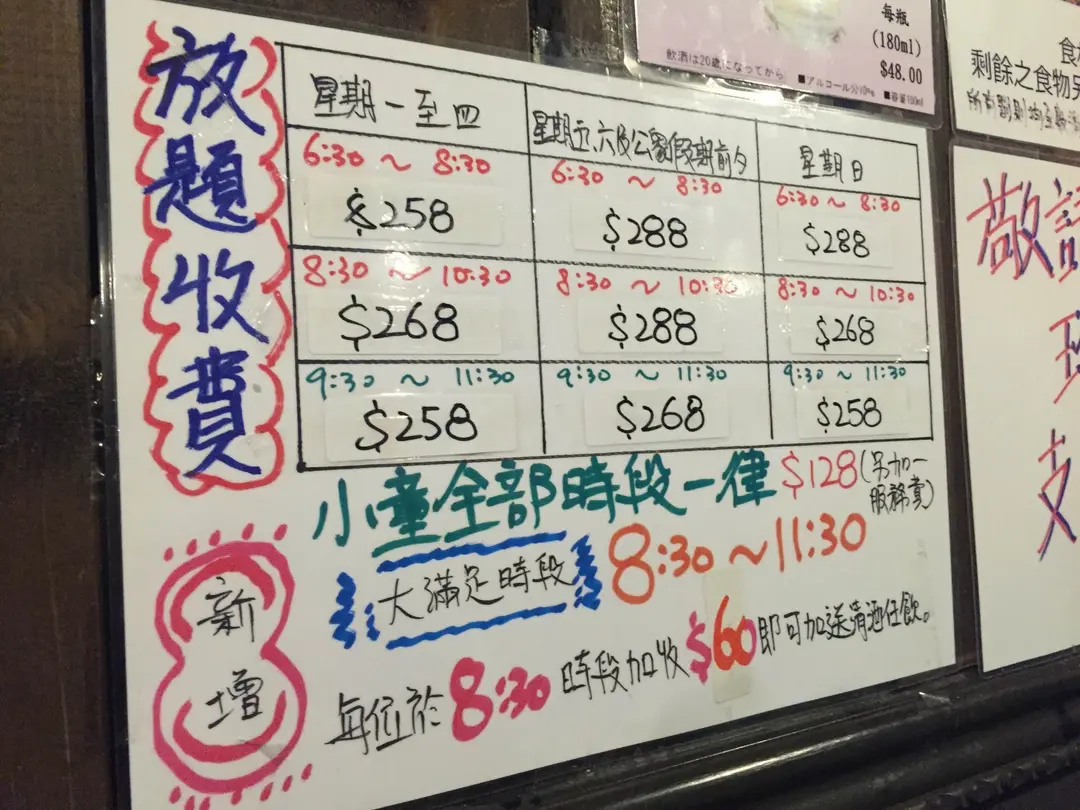 放題收費
星期一至四
星期五,六及公眾假期前夕
星期日
6:30 ~ 8:30
6:30 ~ 8:30
6:30 ~ 8:30
$258
$288
$288
8:30 ~ 10:30
8:30 ~ 10:30
8:30 ~ 10:30
$268
$288
$268
9:30 ~ 11:30
9:30 ~ 11:30
9:30 ~ 11:30
$258
$268
$258
小童全部時段一律 $128(另加一服務費)
新增
大滿足時段 8:30~11:30
每位於 8:30 時段加收 $60 即可加送清酒任飲。
每瓶
(180ml)
$48.00
飲酒は20歳になってから
■アルコール分10%
■容量180ml
剩餘之食物
敬請
支